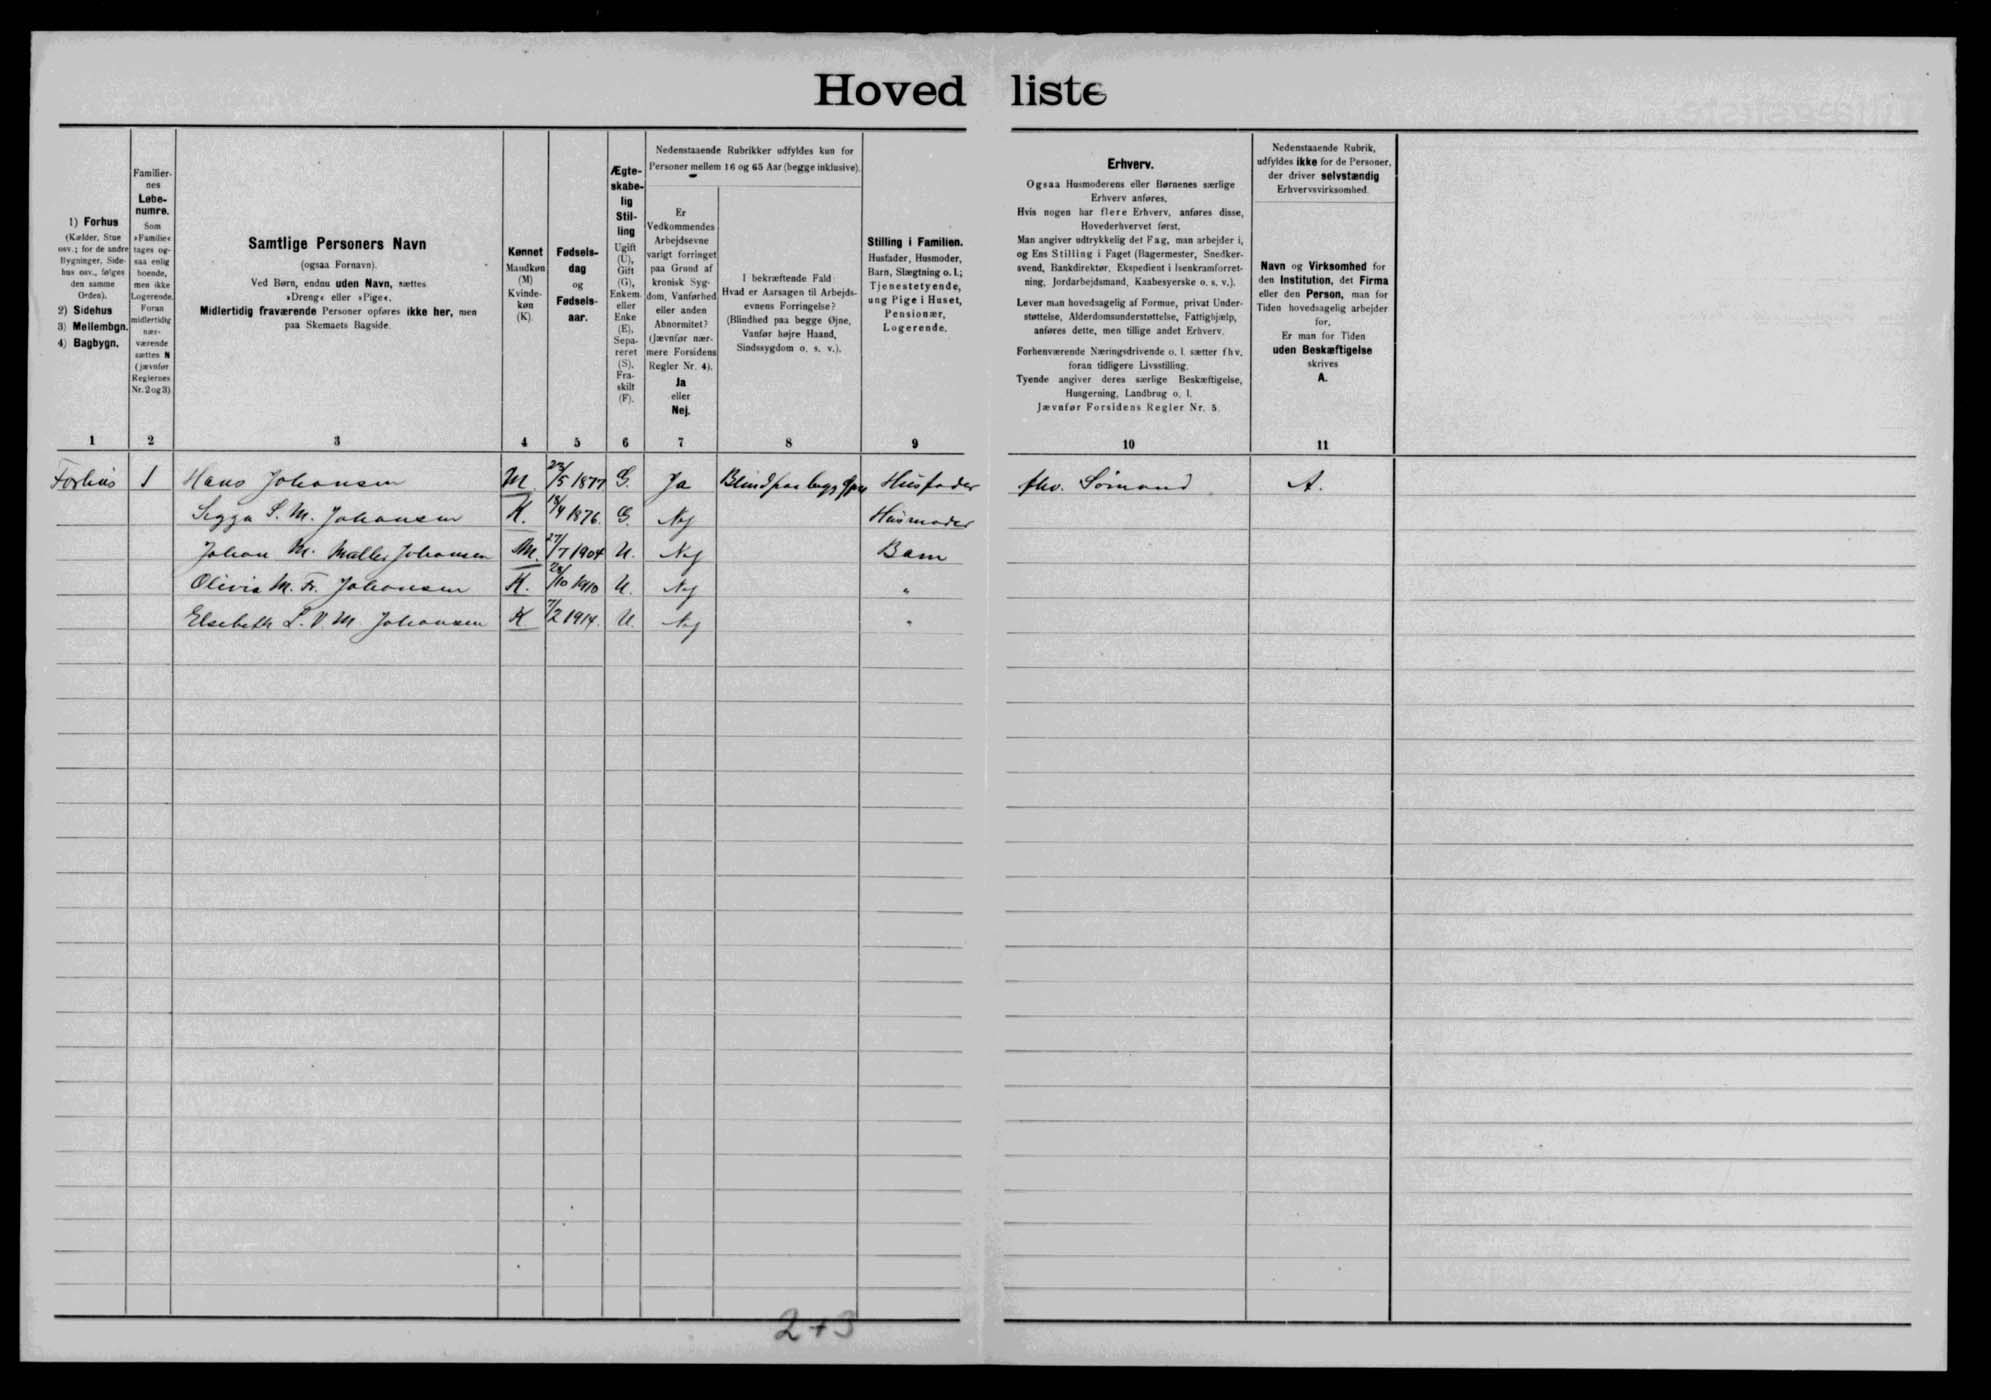 Hoved liste
1) Forhus
(Kælder, Stue
osv.; for de andre
Bygninger, Side-
hus osv., følges
den samme
Orden).
2) Sidehus
3) Mellembgn.
4) Bagbygn.
Familier-
nes
Løbe-
numre.
Som
»Familie«
tages og-
saa enlig
boende,
men ikke
Logerende.
Foran
midlertidig
nær-
værende
sættes N
(jævnfør
Reglernes
Nr. 2 og 3)
Samtlige Personers Navn
(ogsaa Fornavn).
Ved Børn, endnu uden Navn, sættes
»Dreng« eller »Pige«.
Midlertidig fraværende Personer opføres ikke her, men
paa Skemaets Bagside.
Kønnet
Mandkøn
(M)
Kvinde-
køn
(K)
Fødsels-
dag
og
Fødsels-
aar.
Ægte-
skabe-
lig
Stil-
ling
Ugift
(U),
Gift
(G),
Enkem.
eller
Enke
(E),
Sepa-
reret
(S),
Fra-
skilt
(F).
Nedenstaaende Rubrikker udfyldes kun for
Personer mellem 16 og 65 Aar (begge inklusive).
Er
Vedkommendes
Arbejdsevne
varigt forringet
paa Grund af
kronisk Syg-
dom, Vanførhed
eller anden
Abnormitet?
(Jævnfør nær-
mere Forsidens
Regler Nr. 4).
Ja
eller
Nej.
I bekræftende Fald:
Hvad er Aarsagen til Arbejds-
evnens Forringelse?
(Blindhed paa begge Øjne,
Vanfør højre Haand,
Sindssygdom o. s. v.).
Stilling i Familien.
Husfader, Husmoder,
Barn, Slægtning o. l.;
Tjenestetyende,
ung Pige i Huset,
Pensionær,
Logerende.
Erhverv.
Ogsaa Husmoderens eller Børnenes særlige
Erhverv anføres.
Hvis nogen har flere Erhverv, anføres disse,
Hovederhvervet først.
Man angiver udtrykkelig det Fag, man arbejder i,
og Ens Stilling i Faget (Bagermester, Snedker-
svend, Bankdirektør, Ekspedient i Isenkramforret-
ning, Jordarbejdsmand, Kaabesyerske o. s. v.).
Lever man hovedsagelig af Formue, privat Under-
støttelse, Alderdomsunderstøttelse, Fattighjælp,
anføres dette, men tillige andet Erhverv.
Forhenværende Næringsdrivende o. l. sætter fhv.
foran tidligere Livsstilling.
Tyende angiver deres særlige Beskæftigelse,
Husgerning, Landbrug o. l.
Jævnfør Forsidens Regler Nr. 5.
Nedenstaaende Rubrik,
udfyldes ikke for de Personer,
der driver selvstændig
Erhvervsvirksomhed.
Navn og Virksomhed for
den Institution, det Firma
eller den Person, man for
Tiden hovedsagelig arbejder
for.
Er man for Tiden
uden Beskæftigelse
skrives
A.
1 2 3 4 5 6 7 8 9 10 11
Forhus 1 Hans Johansen M. 23/5 1877 G. Ja Blind paa begg Øjne Husfader fhv. Sømand A.
S. M. Johansen K. 18/4 1876. G. Nej Husmoder
Johan M. Møller Johansen M. 27/7 1904 U. Nej Barn
Olivia M. Fr. Johansen K. 28/10 1910 U. Nej "
Elsebeth L. V. M. Johansen K 7/2 1914. U. Nej "
2+3